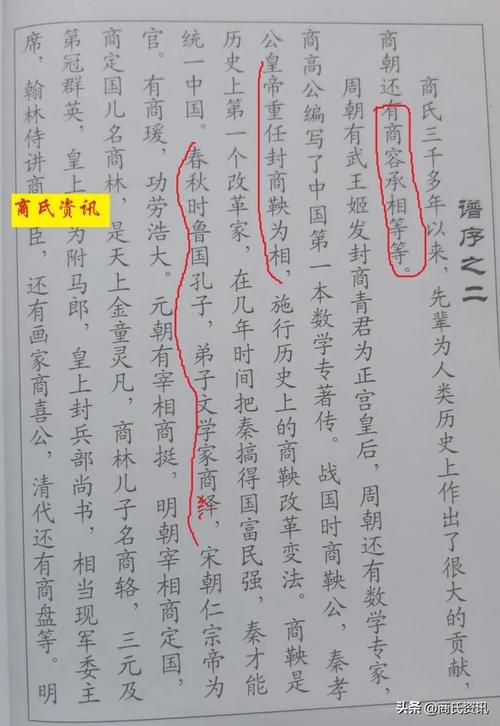 谱序之二
商氏三千多年以来，先辈为人类历史上作出了很大的贡献，
商朝还有商容承相等等。
周朝有武王姬发封商青君为正宫皇后，周朝还有数学专家，
商高公编写了中国第一本数学专著传。战国时商鞅公，秦孝
公皇帝重任封商鞅为相，施行历史上的商鞅改革变法。商鞅是
历史上第一个改革家，在几年时间把秦搞得国富民强，秦才能
统一中国。春秋时鲁国孔子，弟子文学家商，宋朝仁宗帝为
官。有商瑗，功劳浩大。元朝有宰相商挺，明朝宰相商定国，
商定国儿名商林，是天上金童灵凡，商林儿子名商辂，三元及
第冠群英，皇上为附马郎，皇上封兵部尚书，相当现军委主
席，翰林侍讲商臣，还有画家商喜公，清代还有商盘等。明
商氏资讯
头条 @商氏资讯